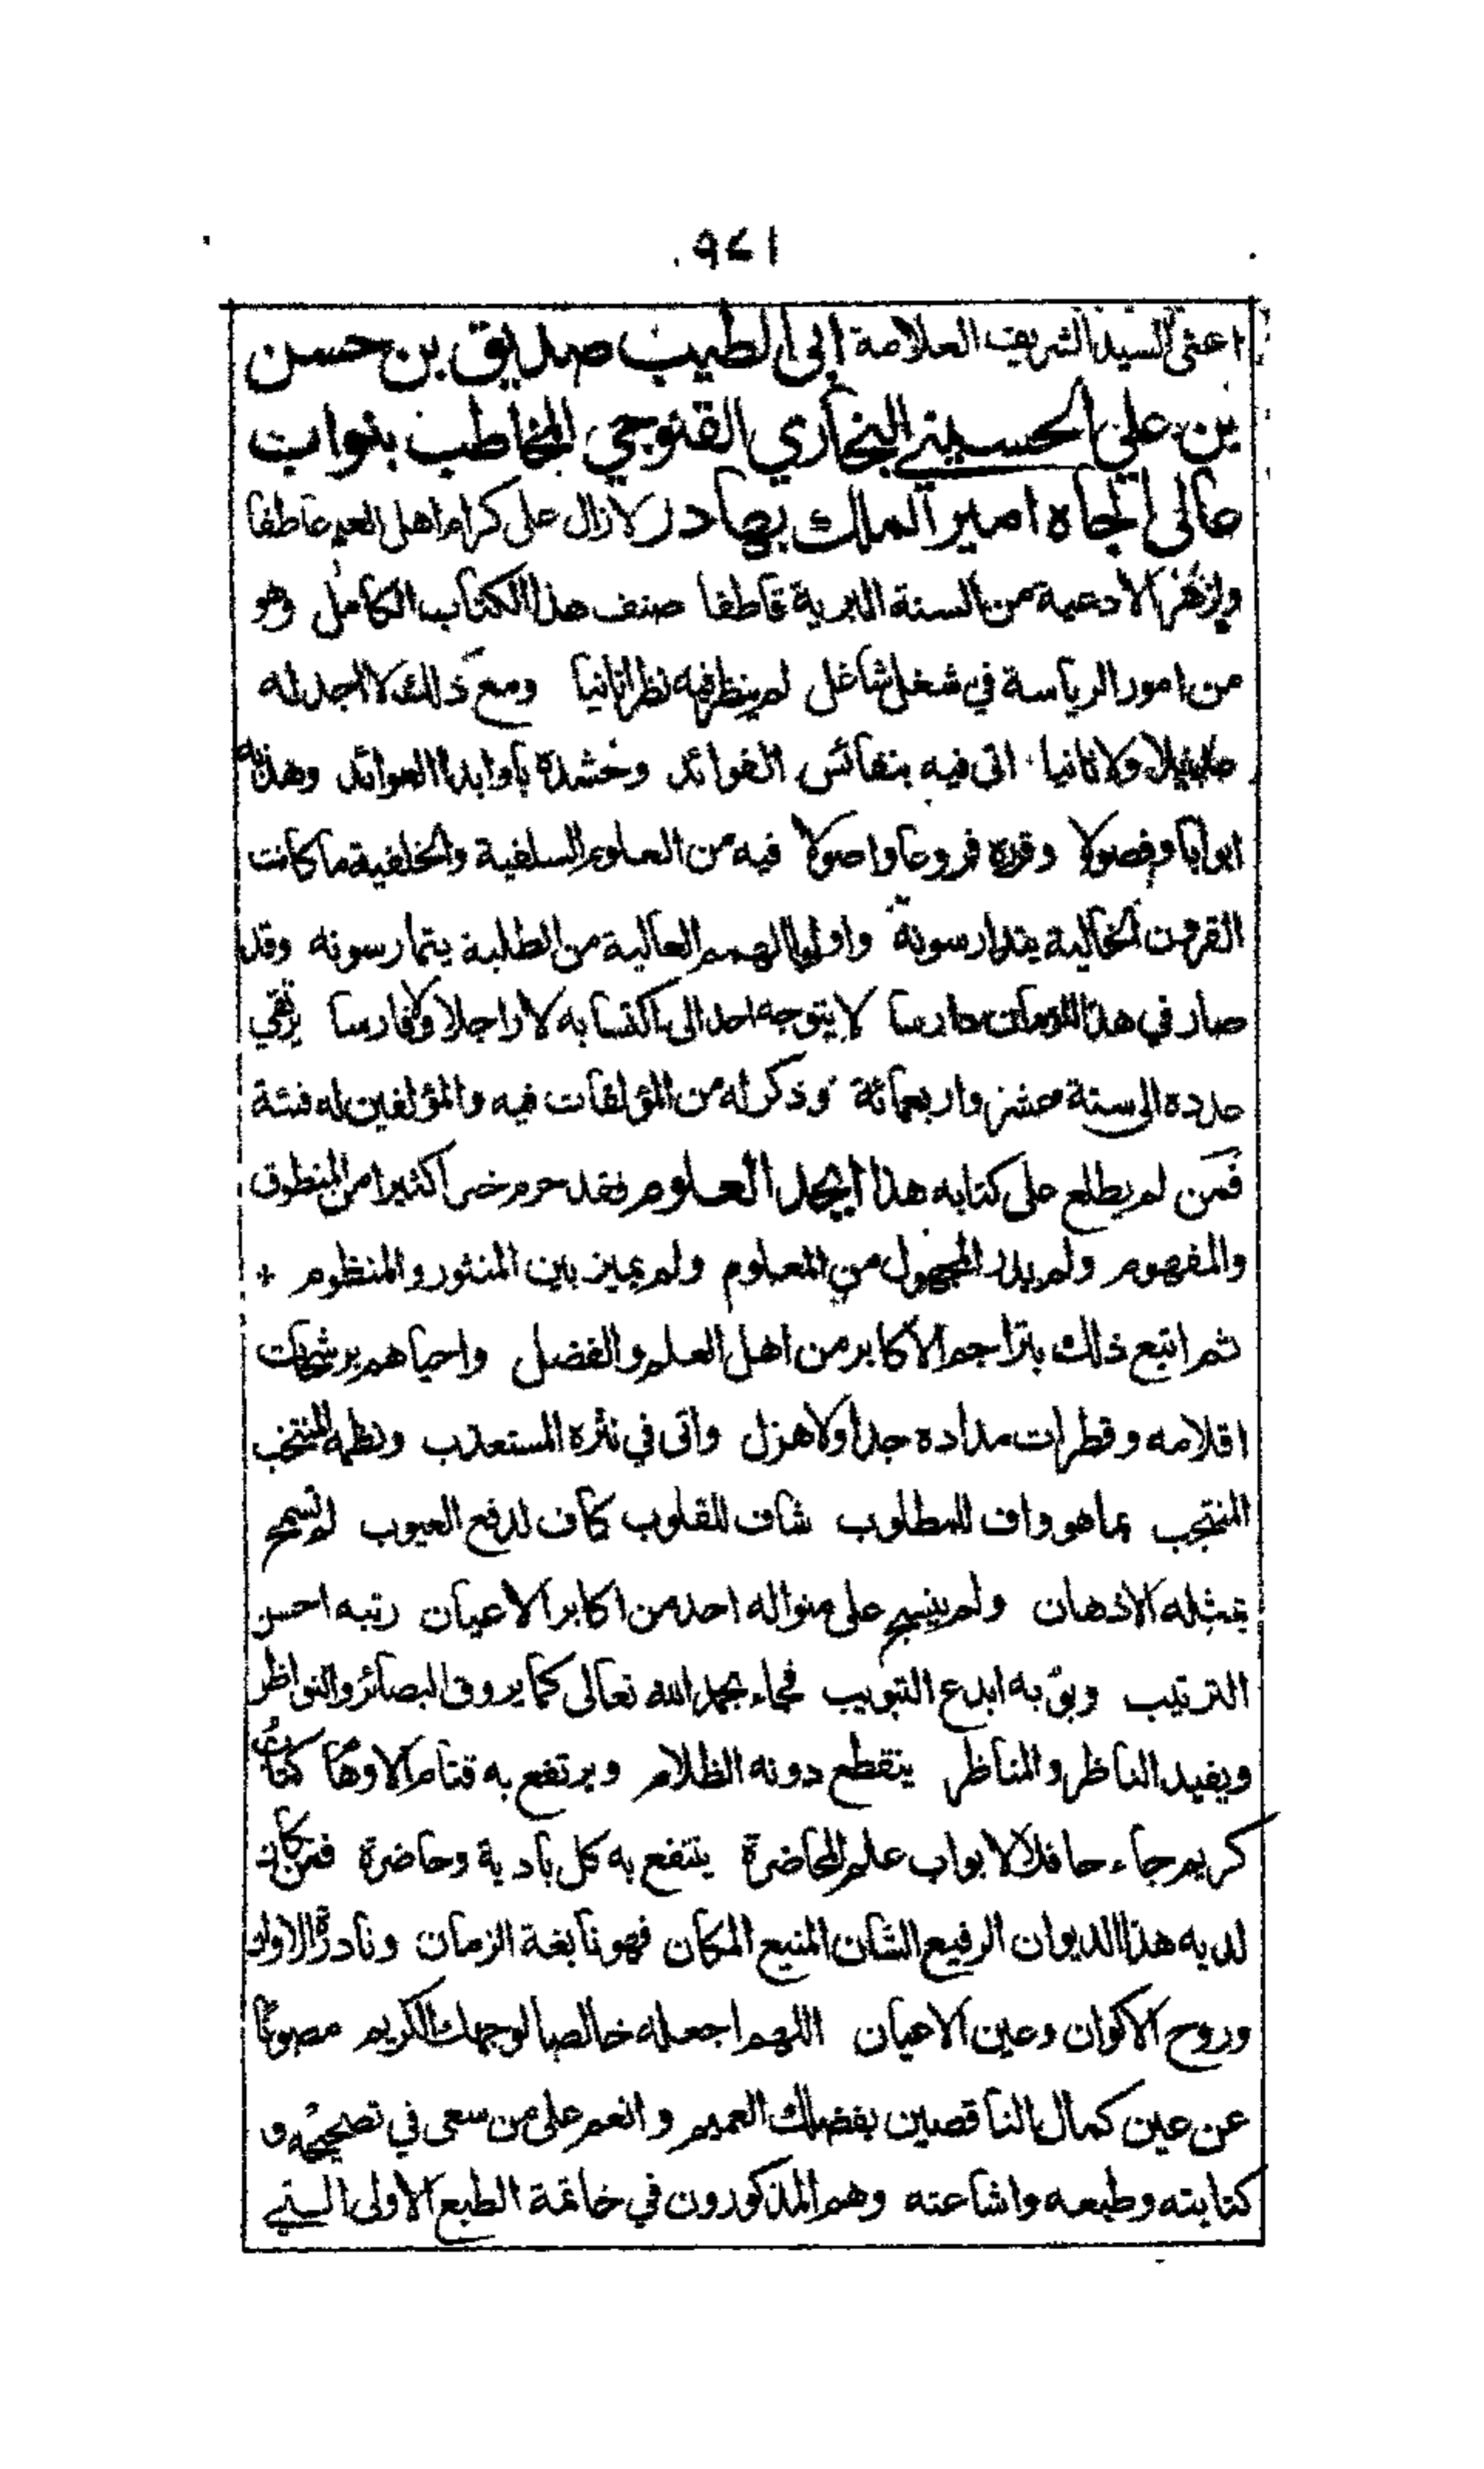 ٩٧١
اعنى السيد الشريف العلامة ابى الطيب صديق بن حسن
بن على الحسيني البخاري القنوجي المخاطب بنواب
عالى الجاه امير الملك بهادر لا زال على كرام اهل العلم عاطفا
ولازهر الادعية من السنة البرية قاطفا صنف هذا الكتاب الكامل وهو
من امور الرياسة في شغل شاغل لم ينظر فيه نظرا ثانيا ومع ذلك لا اجد له
مثيلا ولا ثانيا اتى فيه بنفائس الفوائد وحشده بأوابد العوائد وهذبه
ابوابا وفصولا وقرره فروعا واصولا فيه من العلوم السلفية والخلفية ما كانت
القرون الخالية يتدارسونه واولوا الهمم العالية من الطلبة يتمارسونه وقد
صار في هذا الزمان دارسا لا يتوجه احد الى اكتسابه لا راجلا ولا فارسا يرتقي
عدده الى سنة عشر واربعمائة وذكر له من المؤلفات فيه والمؤلفين له فئة
فمن لم يطلع على كتابه هذا ابجد العلوم فقد حرم خيرا كثيرا من المنطوق
والمفهوم ولم يدر المجهول من المعلوم ولم يميز بين المنثور والمنظوم +
ثم اتبع ذلك بتراجم الاكابر من اهل العلم والفضل واحياهم برشحات
اقلامه وقطرات مداده جدا ولا هزل واتى في نثره المستعذب ونظمه المنتخب
المنتجب بما هو واف للمطلوب شاف للقلوب كاف لدفع العيوب لم تسمح
بمثله الاذهان ولم ينسج على منواله احد من اكابر الاعيان رتبه احسن
الترتيب وبوّبه ابدع التبويب فجاء بحمد الله تعالى كما يروق البصائر والنواظر
ويفيد الناظر والمناظر ينقطع دونه الظلام ويرتفع به قتام الاوهام كتاب
كريم جاء حافلا لابواب علم المحاضرة ينتفع به كل بادية وحاضرة فمن كان
لديه هذا الديوان الرفيع الشان المنيع المكان فهو نابغة الزمان ونادرة الاوان
وروح الاكوان وعين الاعيان اللهم اجعله خالصا لوجهك الكريم مصونا
عن عين كمال الناقصين بفضلك العميم وانعم على من سعى في تصحيحه و
كتابته وطبعه واشاعته وهم المذكورون في خاتمة الطبع الاولى التي